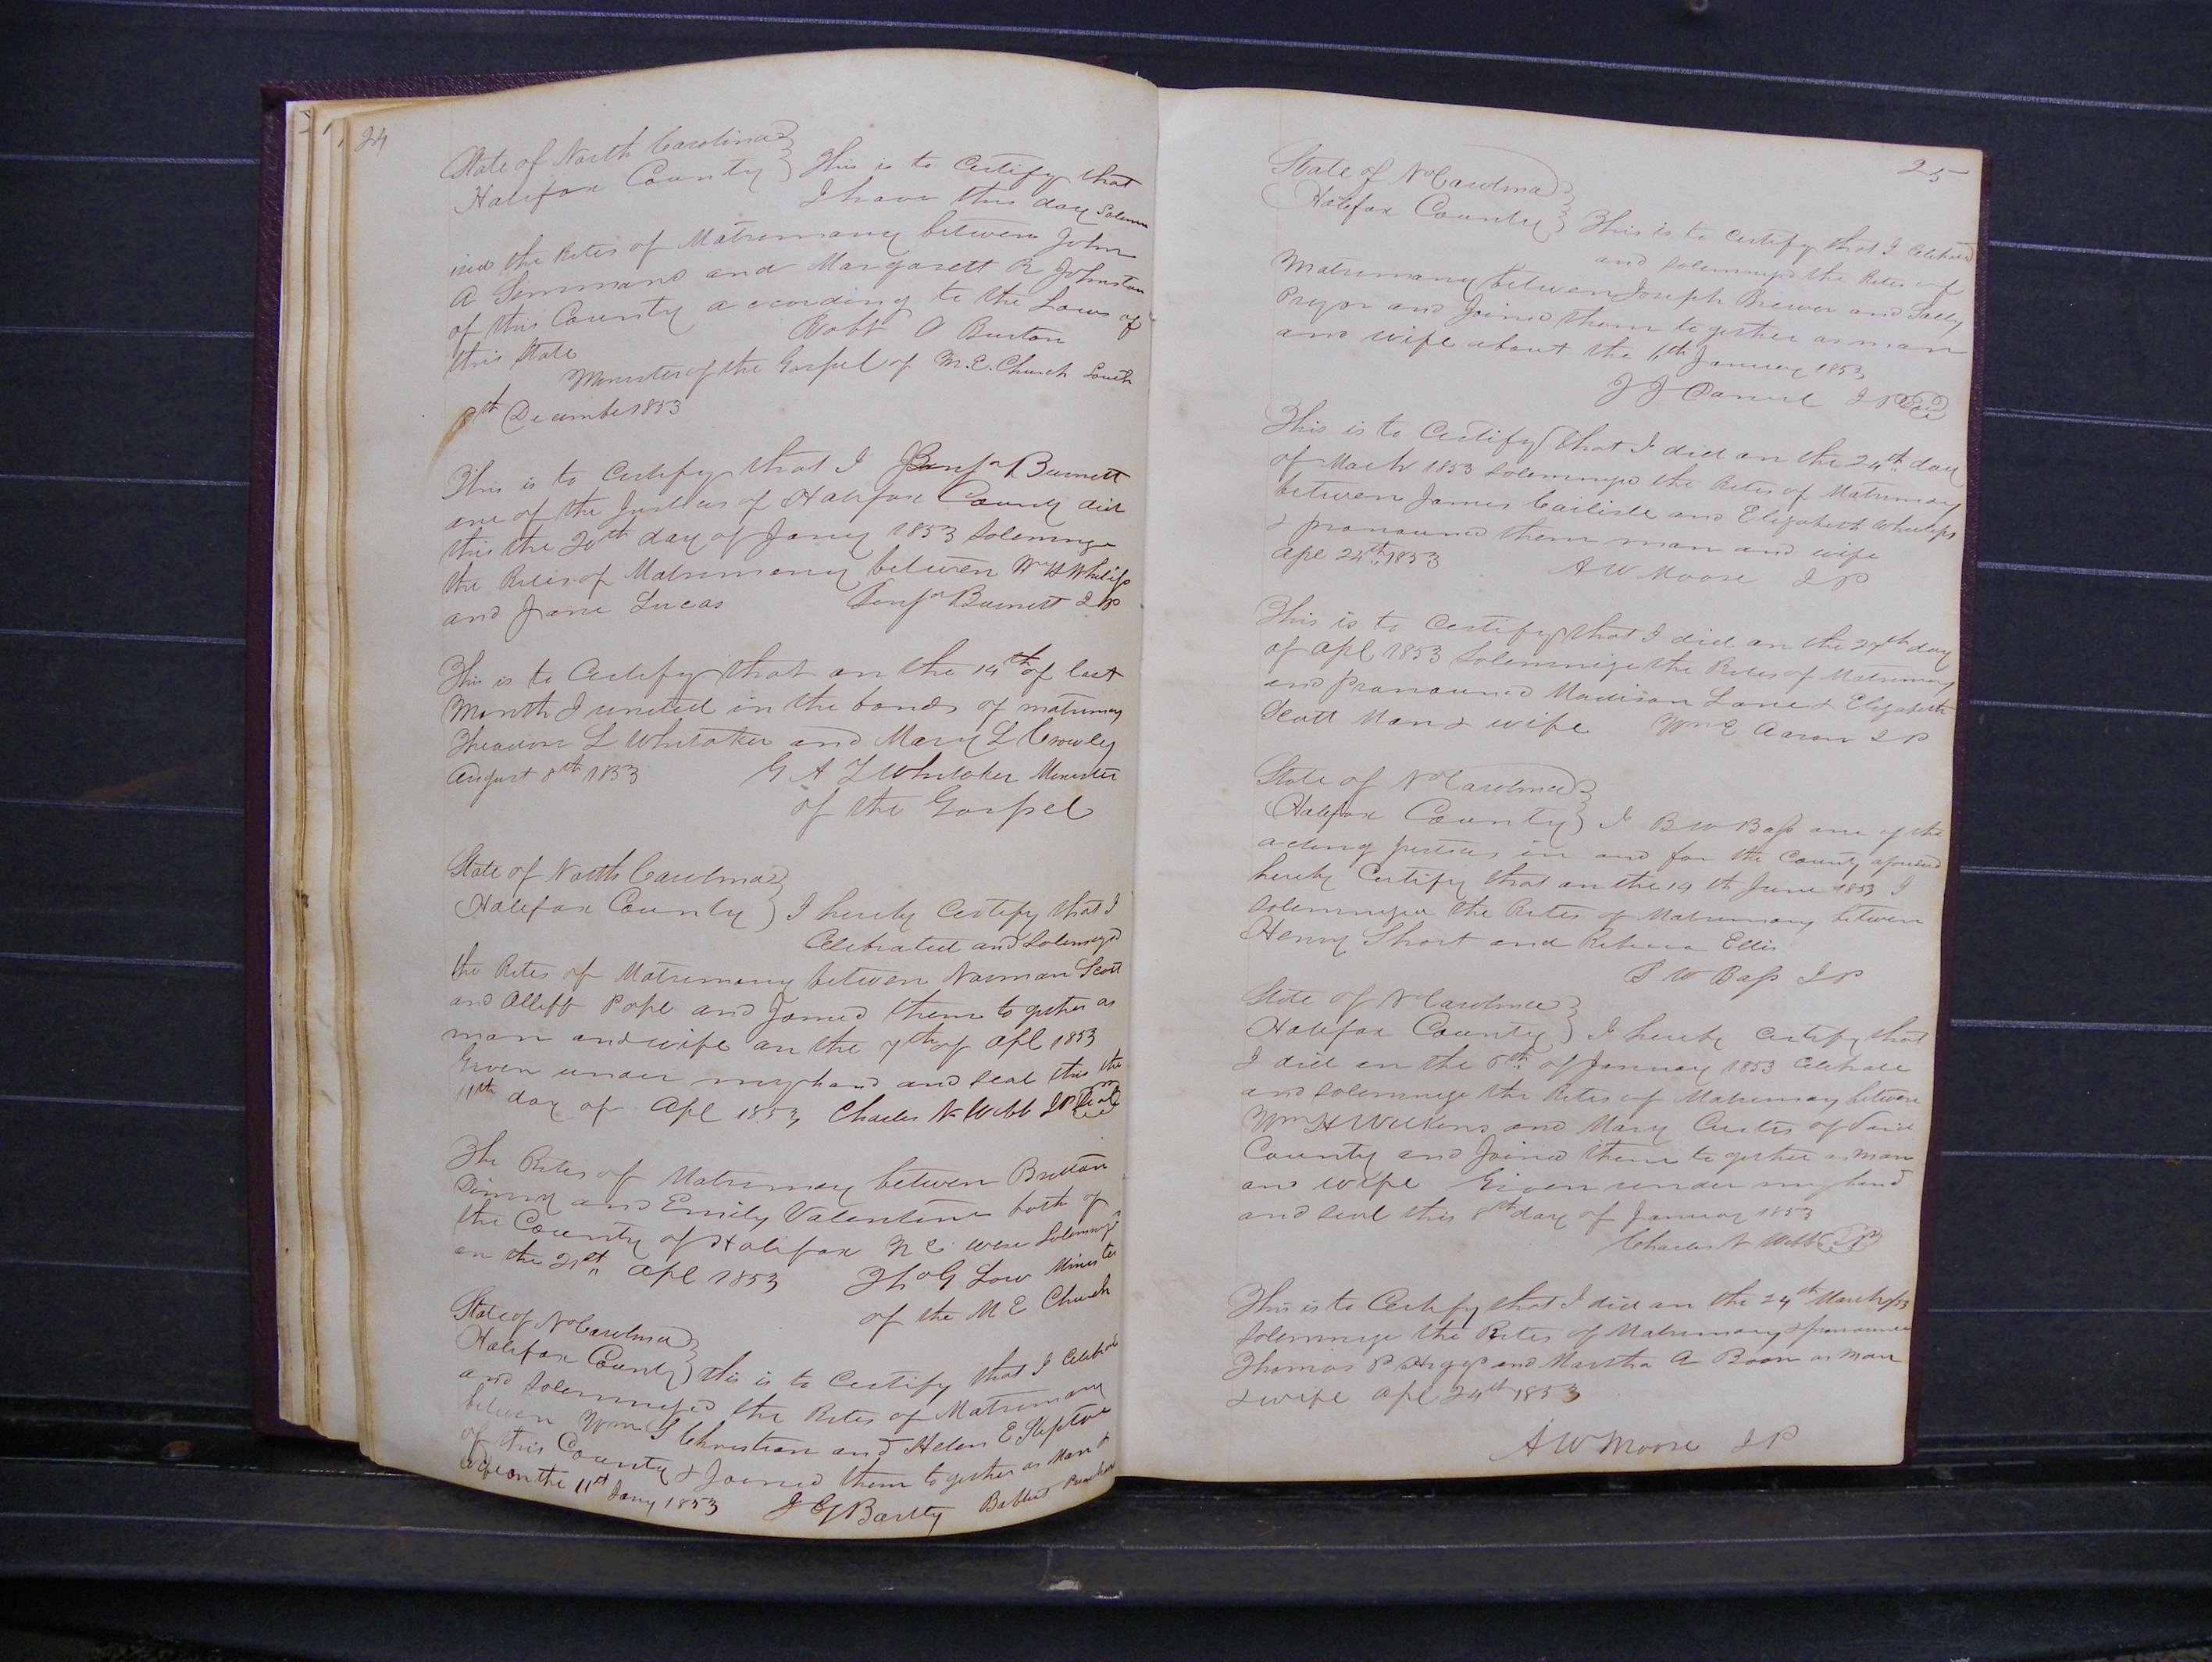 24
State of North Carolina
Halifax County } This is to Certify that
I have this day Solemn
ized the Rites of Matrimony between John
A Simmons and Margarett R Johnston
of this County according to the Laws of
this State Robt O Burton
Minister of the Gospel of M. E. Church South
8th December 1853
This is to Certify that I Benjn Burnett
one of the Justices of Halifax County did
this the 20th day of Jany 1853 Solemnize
the Rites of Matrimony between Wm H Whelips
and Jane Lucas Benjn Burnett J P
This is to Certify that on the 14th of last
Month I united in the bonds of matrimony
L Whitaker and Mary L Crowley
August 8th 1853 G A T Whitaker Minister
of the Gospel
State of North Carolina
Halifax County } I hereby Certify that I
Celebrated and Solemnized
the Rites of Matrimony between Norman Scott
and Pope and Joined them to gether as
man and wife on the 7th of Apl 1853
Given under my hand and seal this the
11th day of Apl 1853 Charles N Webb J P Seal
The Rites of Matrimony between Britton
and Emily Valentine both of
the County of Halifax N C were Solemnized
on the 21st Apl 1853 Th G Low Minister
of the M E Church
State of No Carolina
Halifax County } this is to Certify that I Celebrated
and Solemnized the Rites of Matrimony
between Wm S Christian and Helen E Steptoe
of this County & Joined them to gether as Man &
wife on the 11th Jany 1853 J G Bartly Babtist Preacher
25
State of No Carolina
Halifax County } This is to Certify that I Celebrated
and Solemnized the Rites of
Matrimony between Joseph Brewer and Sally
Pryor and Joined them to gether as man
and wife about the 6th January 1853
J J Daniel J P Seal
This is to Certify that I did on the 24th day
of March 1853 Solemnized the Rites of Matrimony
between James Carlisle and Elizabeth Whelips
& pronounced them man and wife
Apl 24th 1853 A W Moore J P
This is to Certify that I did on the 27th day
of Apl 1853 Solemnize the Rites of Matrimony
and pronounced Madison Lane & Elizabeth
Scott Man & wife Wm E Aaron J P
State of No Carolina
Halifax County } I B W Bass one of the
acting justices in and for the County aforesaid
hereby Certify that on the 14th June 1853 I
Solemnized the Rites of Matrimony between
Henry Short and Rebecca Ellis
B W Bass J P
State of No Carolina
Halifax County } I hereby Certify that
I did on the 6th of January 1853 Celebrate
and Solemnize the Rites of Matrimony between
Wm H Wilkins and Mary Curtis of Said
County and Joined them to gether as man
and wife Given under my hand
and seal this 8th day of January 1853
Charles N Webb J P
This is to Certify that I did on the 24th March /53
Solemnize the Rites of Matrimony & pronounce
Thomas P and Martha A Boon as Man
& wife Apl 24th 1853
A W Moore J P